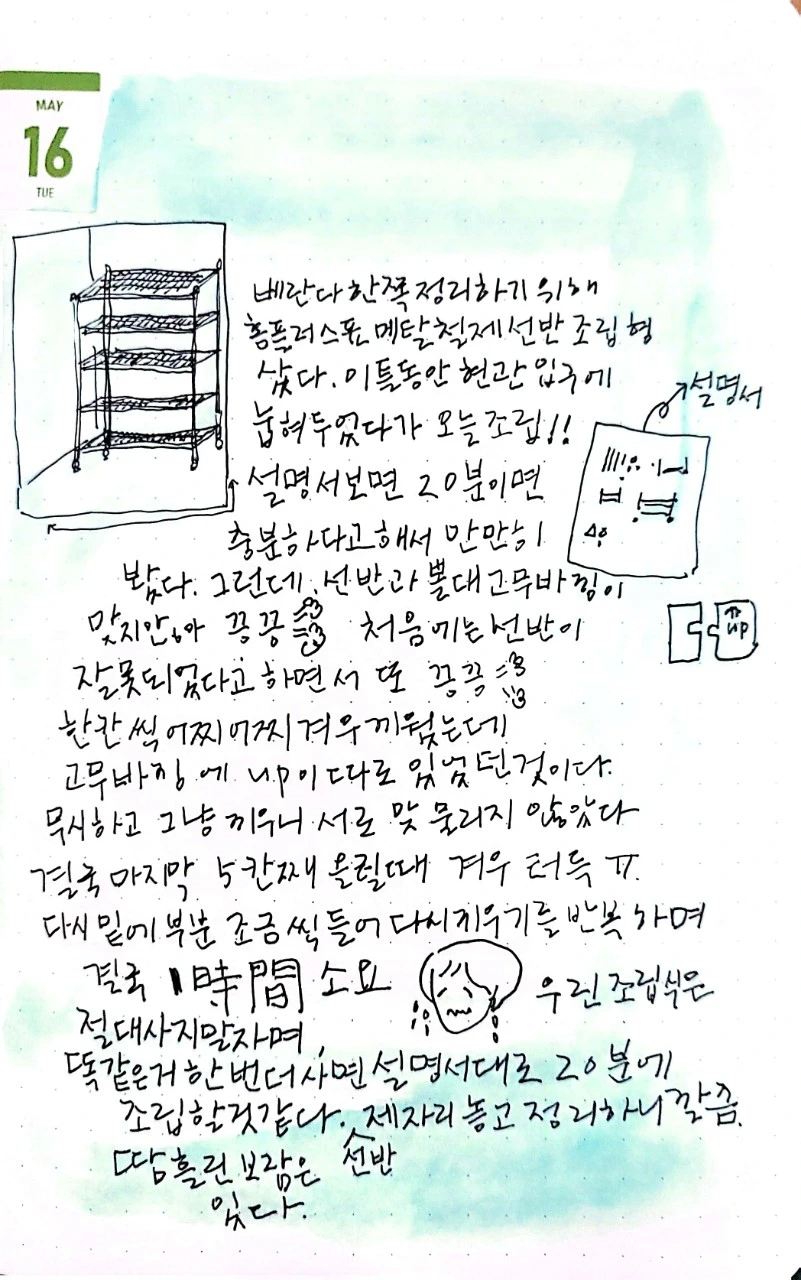 MAY
16
TUE
베란다 한쪽 정리하기 위해
홈플러스표 메탈철제선반 조립형
샀다. 이틀동안 현관 입구에
눕혀두었다가 오늘조립!!
설명서
설명서보면 20분이면
충분하다고해서 만만히
봤다. 그런데, 선반과 뽈대고무바킹이
맞지안아 끙끙 처음에는 선반이
up
잘못되었다고 하면서 또 끙끙
한칸 씩 어찌어찌 겨우 끼웠는데
고무바킹에 up이 따로 있었던것이다.
무시하고 그냥 끼우니 서로 맞물리지 않았다
결국 마지막 5칸째 올릴때 겨우 터득 ㅠ.
다시 밑에 부분 조금씩 들어 다시끼우기를 반복하며
결국 1時間 소요 우린 조립식은
절대사지말자며,
똑같은거 한번더사면 설명서대로 20분에
조립할것같다. 제자리 놓고 정리하니 깔끔.
땀흘린 보람은 선반
있다.